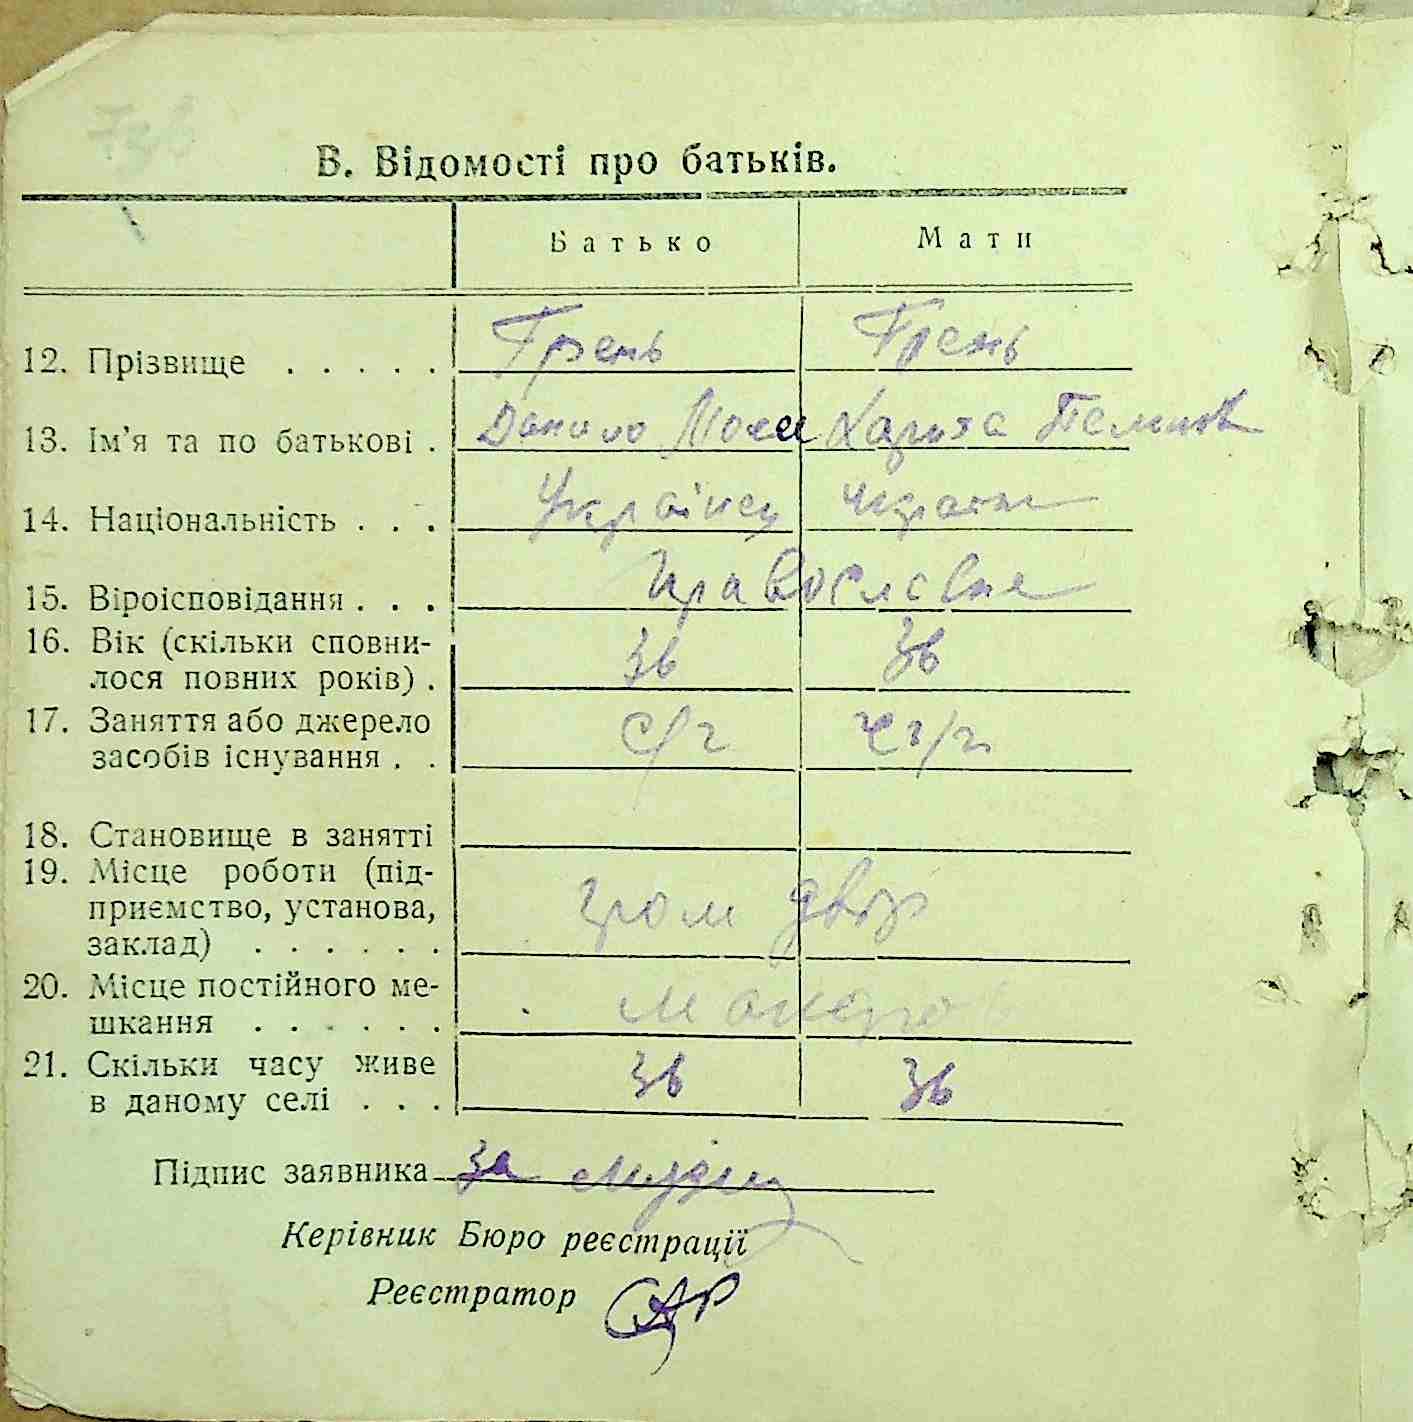 В. Відомості про батьків.
Батько Мати
12. Прізвище . . . . . Грень Грень
13. Ім'я та по батькові . Данило Мосе
14. Національність . . . Українец
15. Віроісповідання . . . православне
16. Вік (скільки сповни-
лося повних років) . 36 36
17. Заняття або джерело
засобів існування . . с/г
18. Становище в занятті
19. Місце роботи (під-
приємство, установа,
заклад) . . . . . . гром двор
20. Місце постійного ме-
шкання . . . . . .
21. Скільки часу живе
в даному селі . . . 36 36
Підпис заявника за
Керівник Бюро реєстрації
Реєстратор